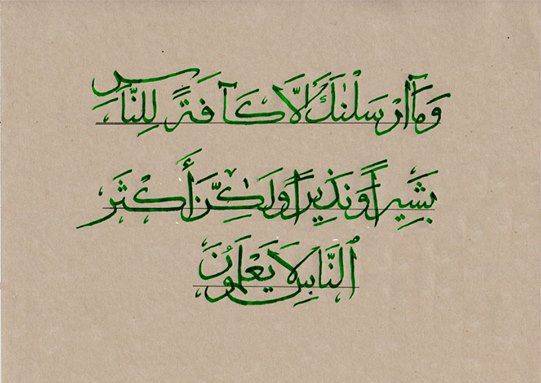 وَمَآ أَرْسَلْنٰكَ إِلَّا كَآفَةً لِلنَّاسِ
بَشِيرًا وَنَذِيرًا وَلَٰكِنَّ أَكْثَرَ
ٱلنَّاسِ لَا يَعْلَمُونَ